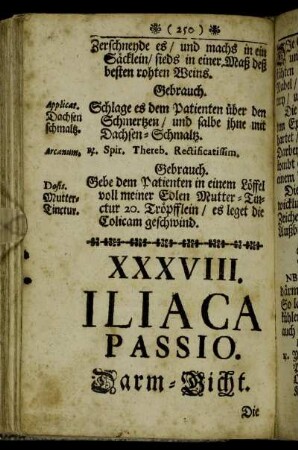 ( 250 )
Zerschneyde es / und machs in ein
Säcklein / sieds in einer Maß deß
besten rohten Weins.
Gebrauch.
Applicat.
Dachsen
schmaltz.
Schlage es dem Patienten über den
Schmertzen / und salbe ihne mit
Dachsen-Schmaltz.
Arcanum.
℞. Spir. Thereb. Rectificatissim.
Gebrauch.
Dosis.
Mutter-
Tinctur.
Gebe dem Patienten in einem Löffel
voll meiner Edlen Mutter-Tin-
ctur 20. Tröpfflein / es leget die
Colicam geschwind.
XXXVIII.
ILIACA
PASSIO.
Darm-Gicht.
Die